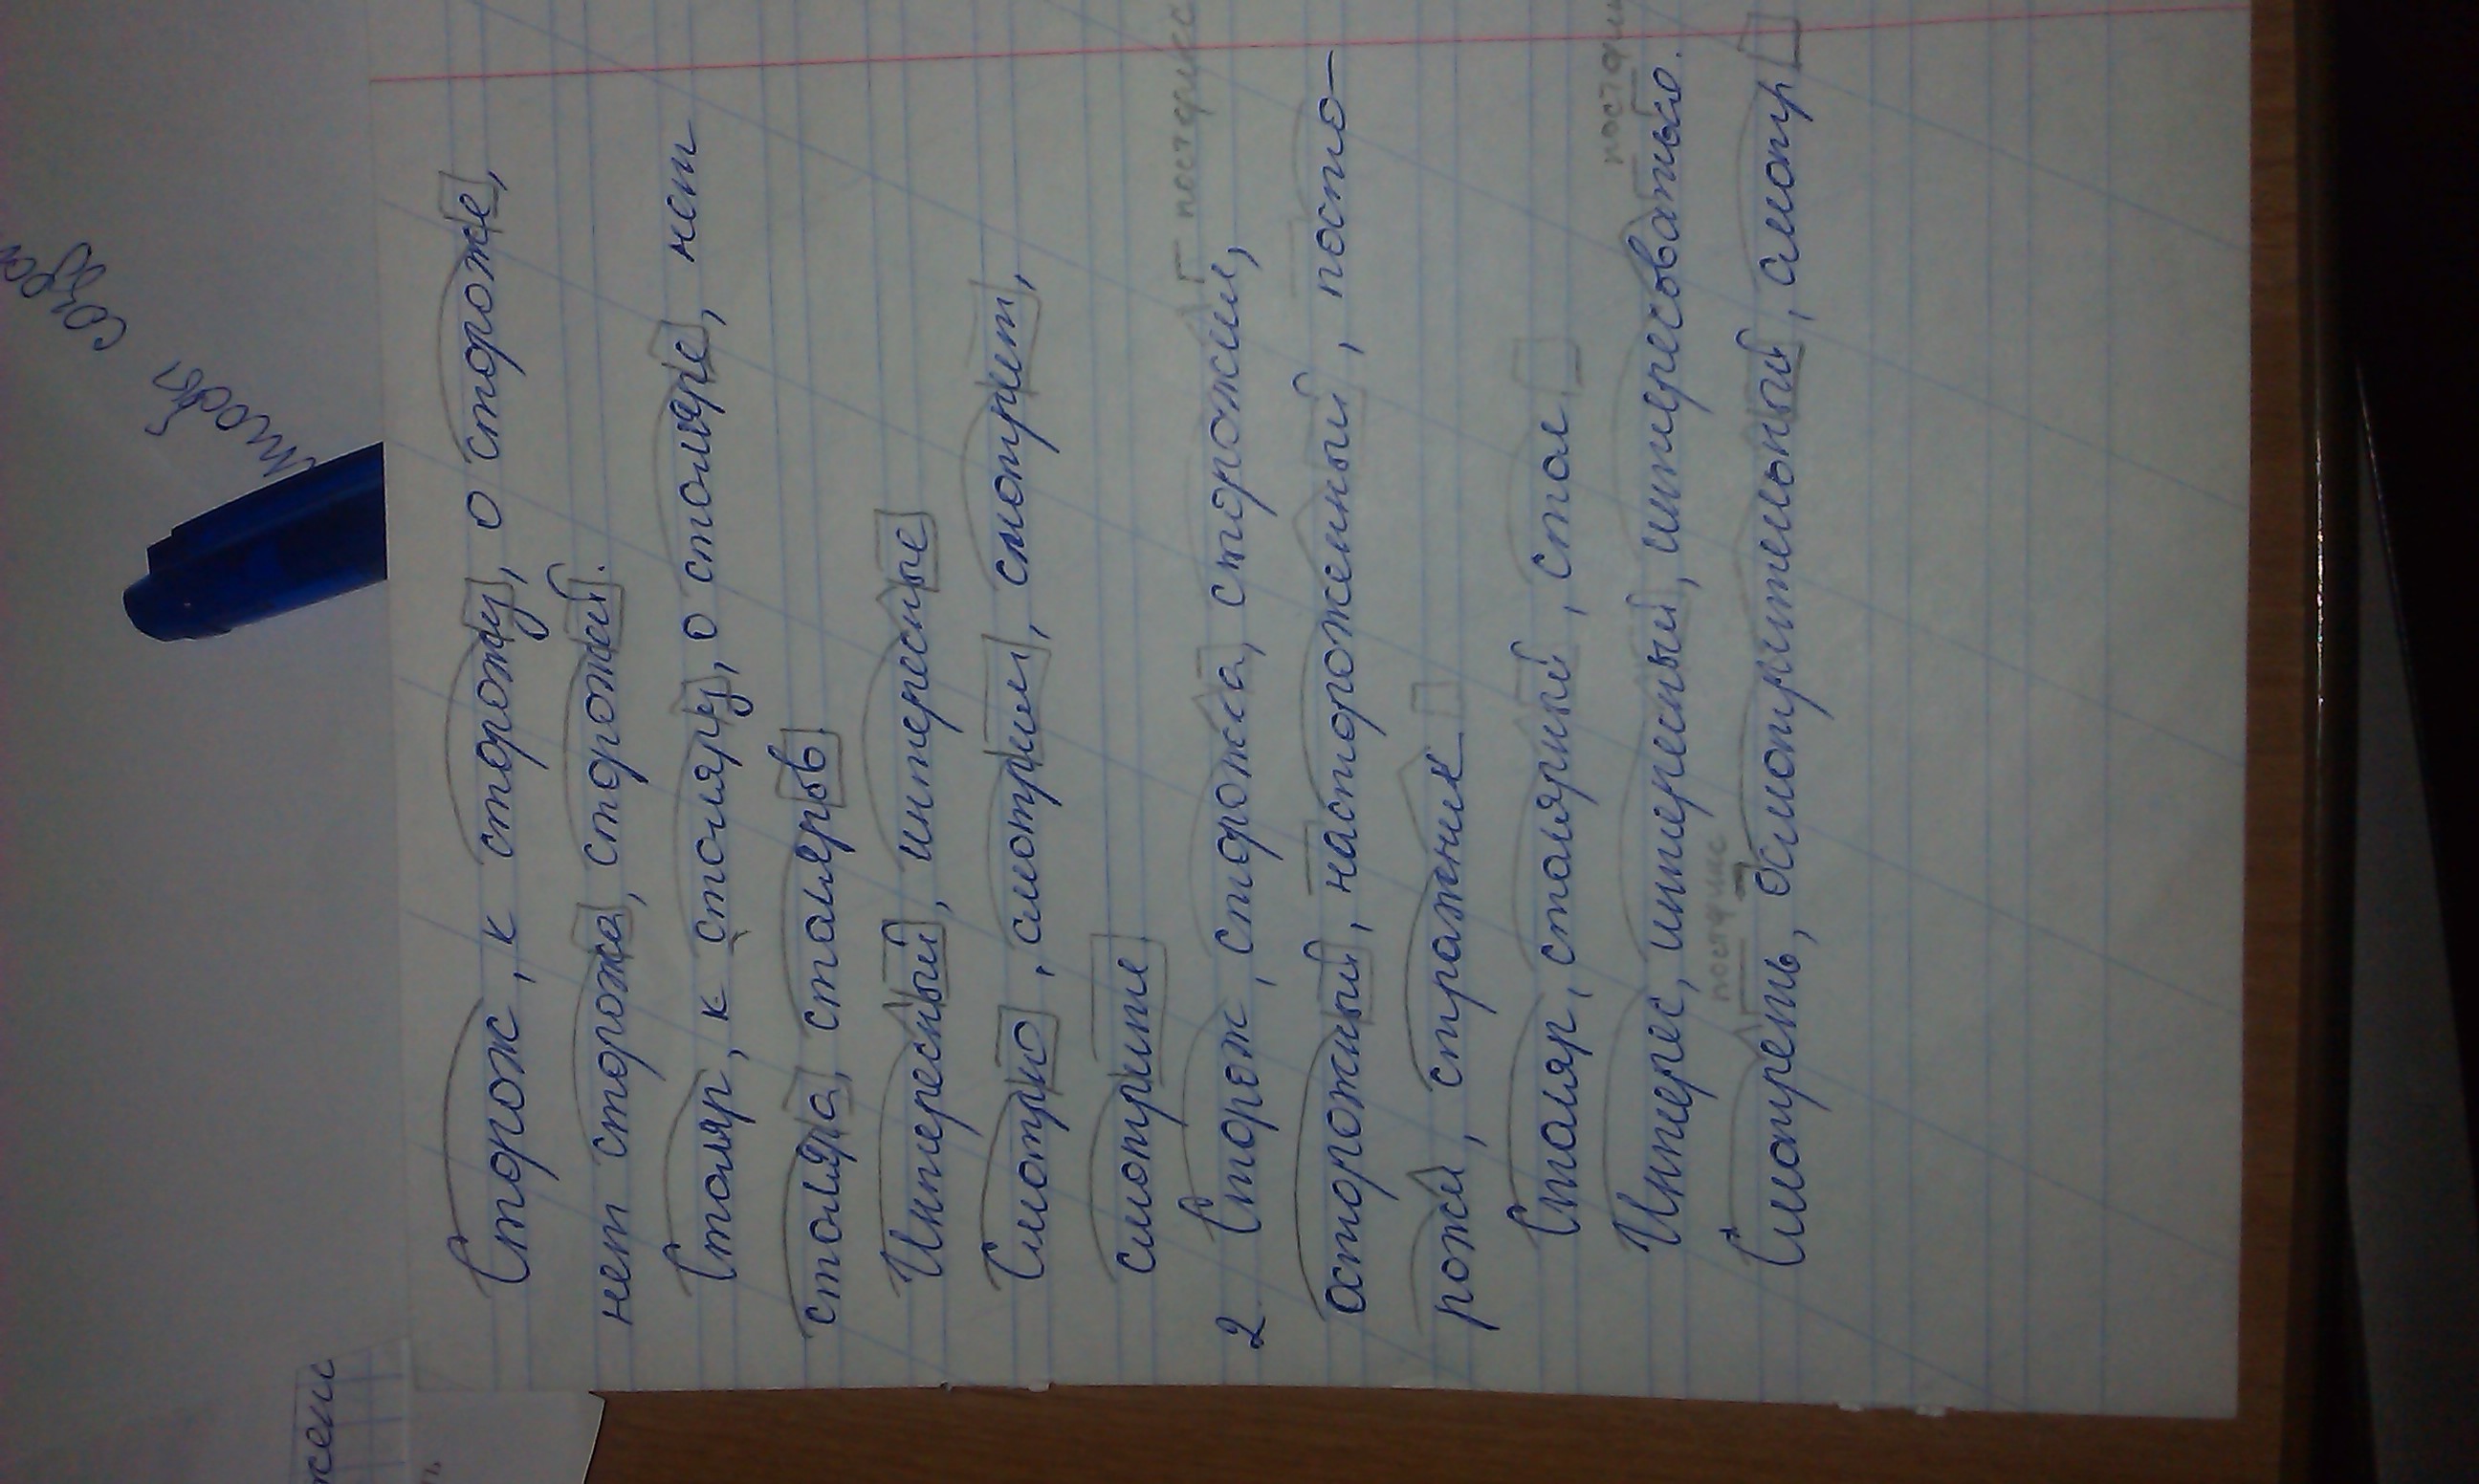 Сторож, к сторожу, о стороже,
нет сторожа, сторожей.
Столяр, к столяру, о столяре, нет
столяра, столяров
Интересный, интересные
Смотрю, смотрим, смотрит,
смотрите
постфикс
2. Сторож, сторожка, сторожил,
осторожный, настороженный, посто-
рожил, стражник
Столяр, столярный, стол
Интерес, интересный, интересоваться.
постфикс
Смотреть, осмотрительный, смотр